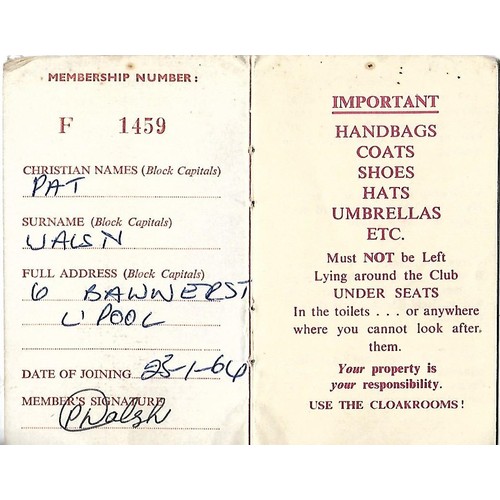 MEMBERSHIP NUMBER:
F 1459
CHRISTIAN NAMES (Block Capitals)
PAT
SURNAME (Block Capitals)
WALSH
FULL ADDRESS (Block Capitals)
6 BAWNER ST
L'POOL
DATE OF JOINING 23-1-64
MEMBER'S SIGNATURE
P Walsh
IMPORTANT
HANDBAGS
COATS
SHOES
HATS
UMBRELLAS
ETC.
Must NOT be Left
Lying around the Club
UNDER SEATS
In the toilets . . . or anywhere
where you cannot look after
them.
Your property is
your responsibility.
USE THE CLOAKROOMS!